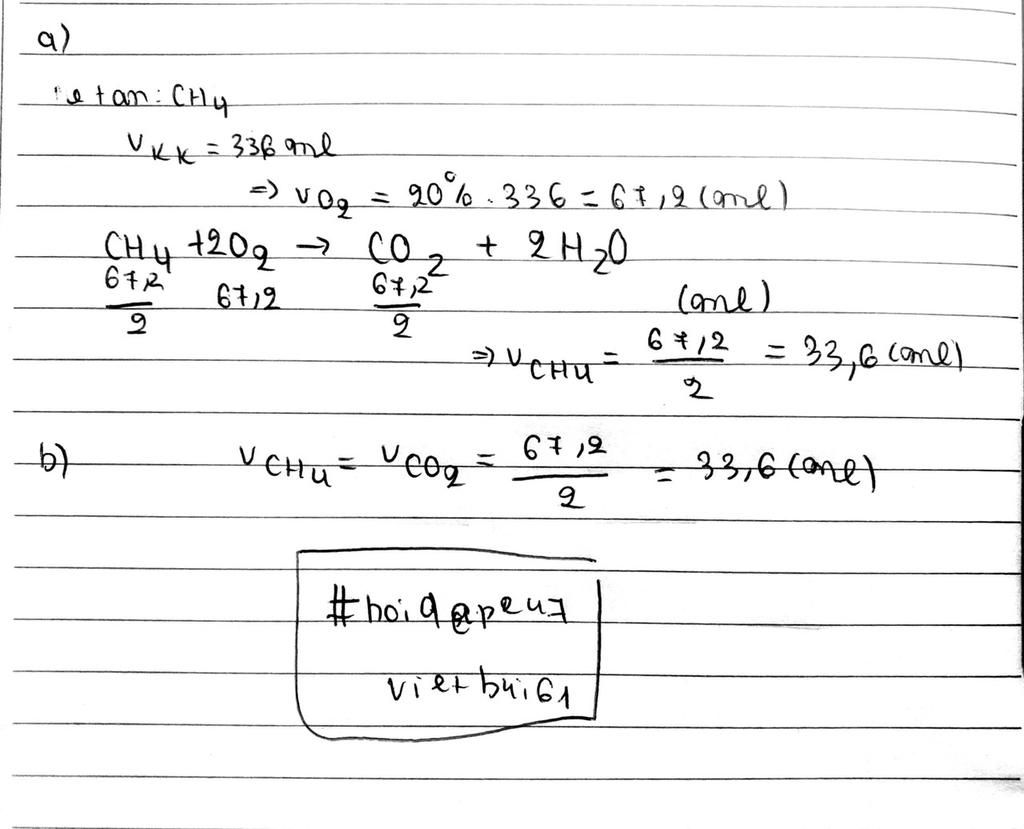 a)
etan: CH4
VKK = 336 ml
=> VO2 = 20% . 336 = 67,2 (ml)
CH4 + 2O2 → CO2 + 2H2O
67,2/2 67,2 67,2/2 (ml)
=> VCH4 = 67,2/2 = 33,6 (ml)
b) VCH4 = VCO2 = 67,2/2 = 33,6 (ml)
vietbui61